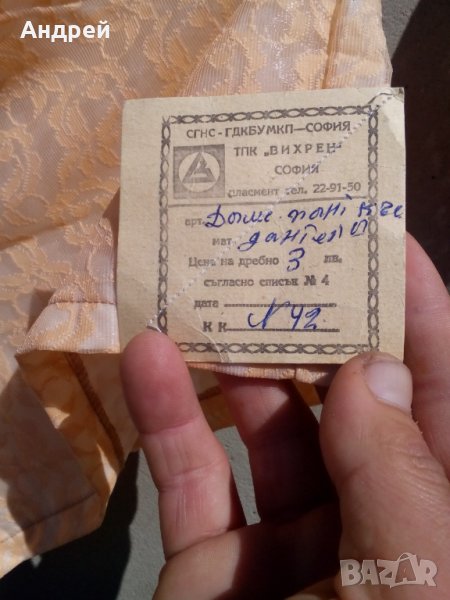 Андрей
СГНС - ГДКБУМКП — СОФИЯ
ТПК „ВИХРЕН"
СОФИЯ
пласмент тел. 22-91-50
арт. Дамс. панталон
мат. дантела
Цена на дребно 3 лв.
съгласно списък № 4
дата
К К N 42
BAZAR